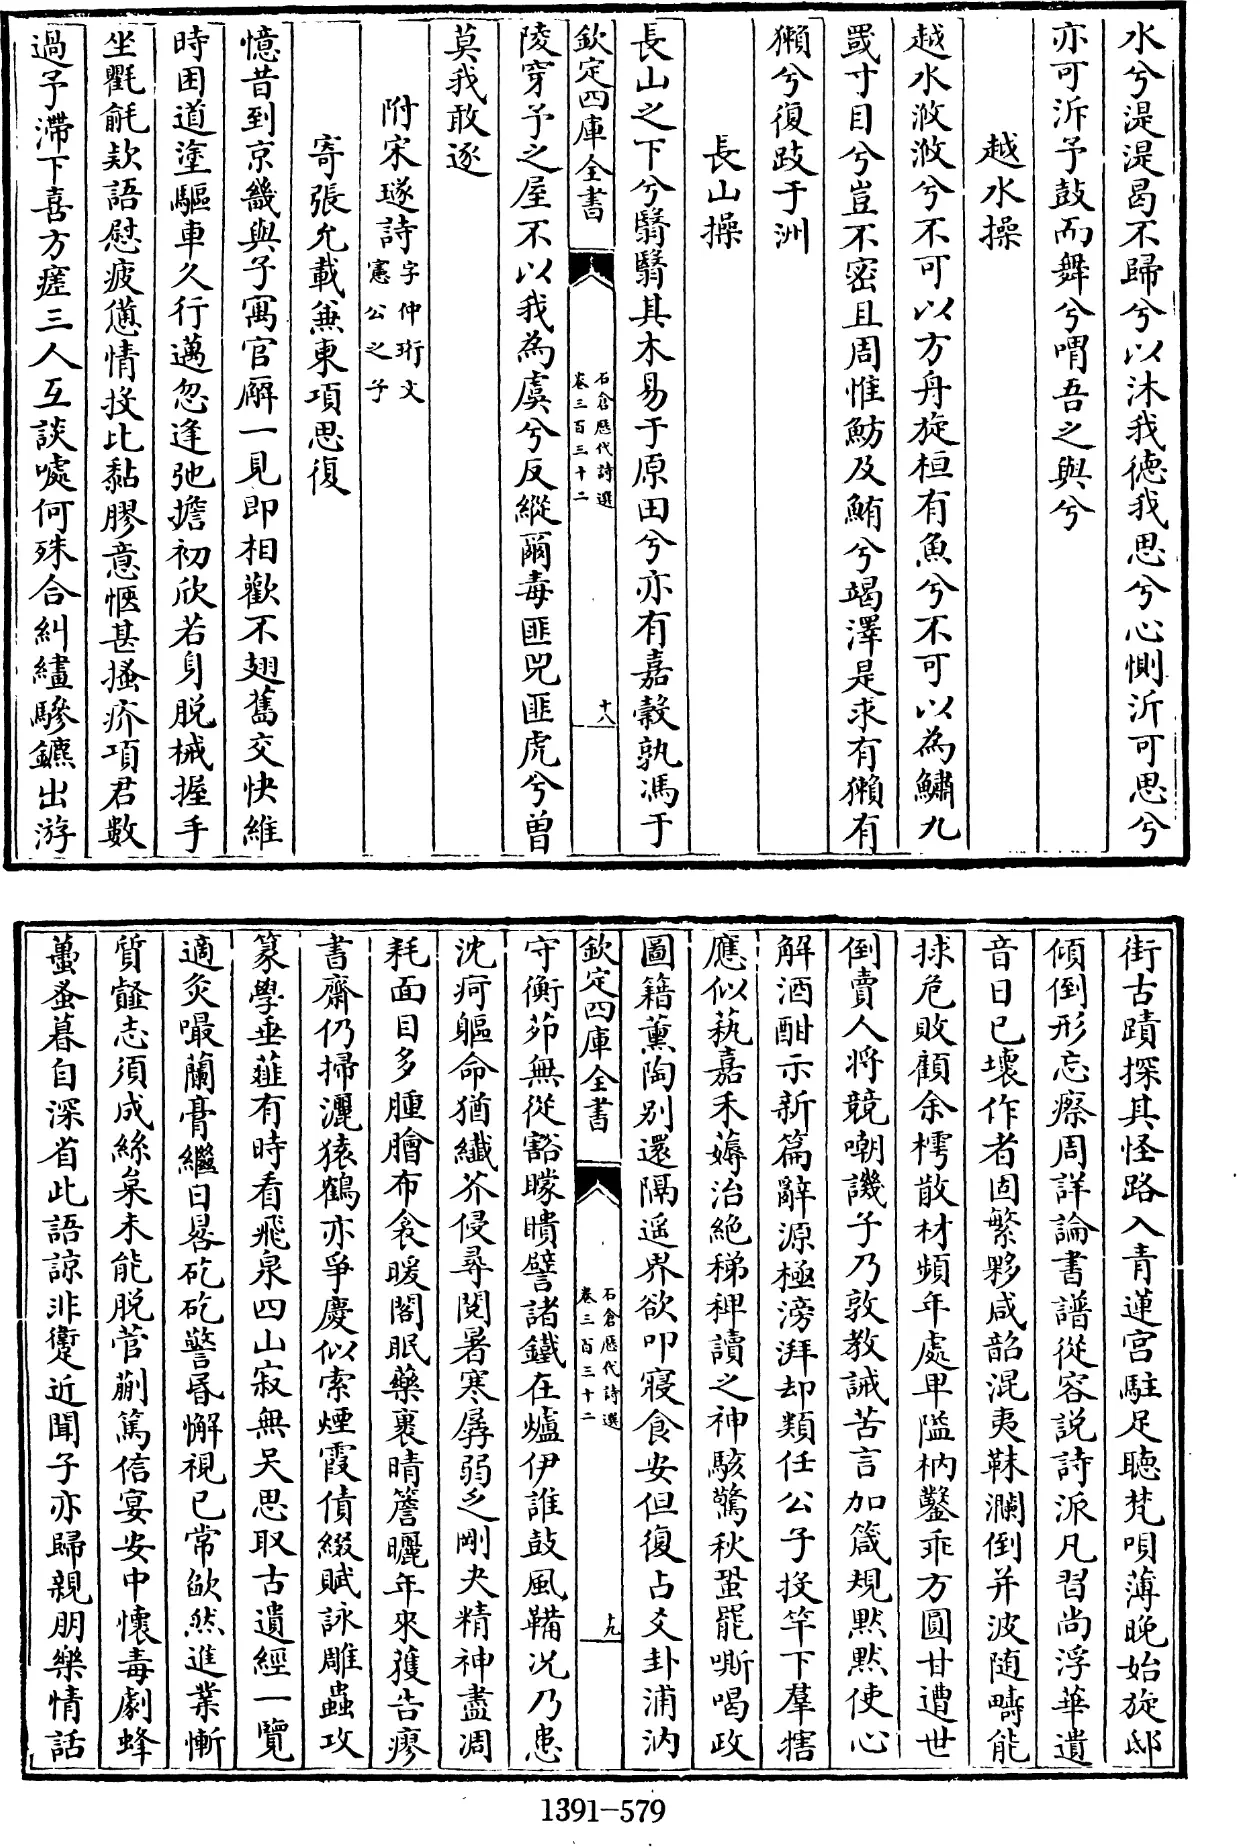 水兮湜湜曷不歸兮以沐我德我思兮心惻沂可思兮
亦可泝予鼓而舞兮喟吾之與兮
越水操
越水浟浟兮不可以方舟旋桓有魚兮不可以為鱐九
罭寸目兮豈不密且周惟魴及鮪兮竭澤是求有獺有
獺兮復跂于洲
長山操
長山之下兮翳翳其木易于原田兮亦有嘉穀孰馮于
欽定四庫全書
石倉歷代詩選
卷三百三十二
十八
陵穿予之屋不以我為虞兮反縱爾毒匪兕匪虎兮曾
莫我敢逐
附宋璲詩字仲珩文
憲公之子
寄張允載兼東項思復
憶昔到京畿與子寓官廨一見即相歡不翅舊交快維
時困道塗驅車久行邁忽逢弛擔初欣若身脫械握手
坐氍毹欵語慰疲憊情投比黏膠意愜甚搔疥項君數
過予滯下喜方瘥三人互談噱何殊合糾繣驂鑣出游
街古蹟探其怪路入青蓮宮駐足聽梵唄薄晚始旋邸
傾倒形忘瘵周詳論書譜從容説詩派凡習尚浮華遺
音日已壞作者固繁夥咸韶混夷靺瀾倒并波随疇能
捄危敗顧余樗散材頻年處卑隘枘鑿乖方圓甘遭世
倒賣人將競嘲譏子乃敦教誡苦言加箴規黙黙使心
解酒酣示新篇辭源極滂湃却類任公子投竿下羣犗
應似蓺嘉禾薅治絶稊稗讀之神駭驚秋蛩罷嘶喝政
圖籍薰陶别還隔遥界欲叩寢食安但復占爻卦浦汭
欽定四庫全書
石倉歷代詩選
卷三百三十二
十九
守衡茆無從豁矇瞶譬諸鐵在爐伊誰鼓風鞴况乃患
沈疴軀命猶纖芥侵尋閱暑寒孱弱乏剛夬精神盡凋
耗面目多腫膾布衾暖閣眠藥裹晴簷曬年來獲告瘳
書齋仍掃灑猿鶴亦爭慶似索煙霞債綴賦詠雕蟲攻
篆學垂薤有時看飛泉四山寂無吴思取古遺經一覽
適灸嘬蘭膏繼日晷矻矻警昏懈視已常欿然進業慚
質韰志須成絲枲未能脱菅蒯篤信宴安中懷毒劇蜂
蠆蚤暮自深省此語諒非躗近聞子亦歸親朋樂情話
1391-579